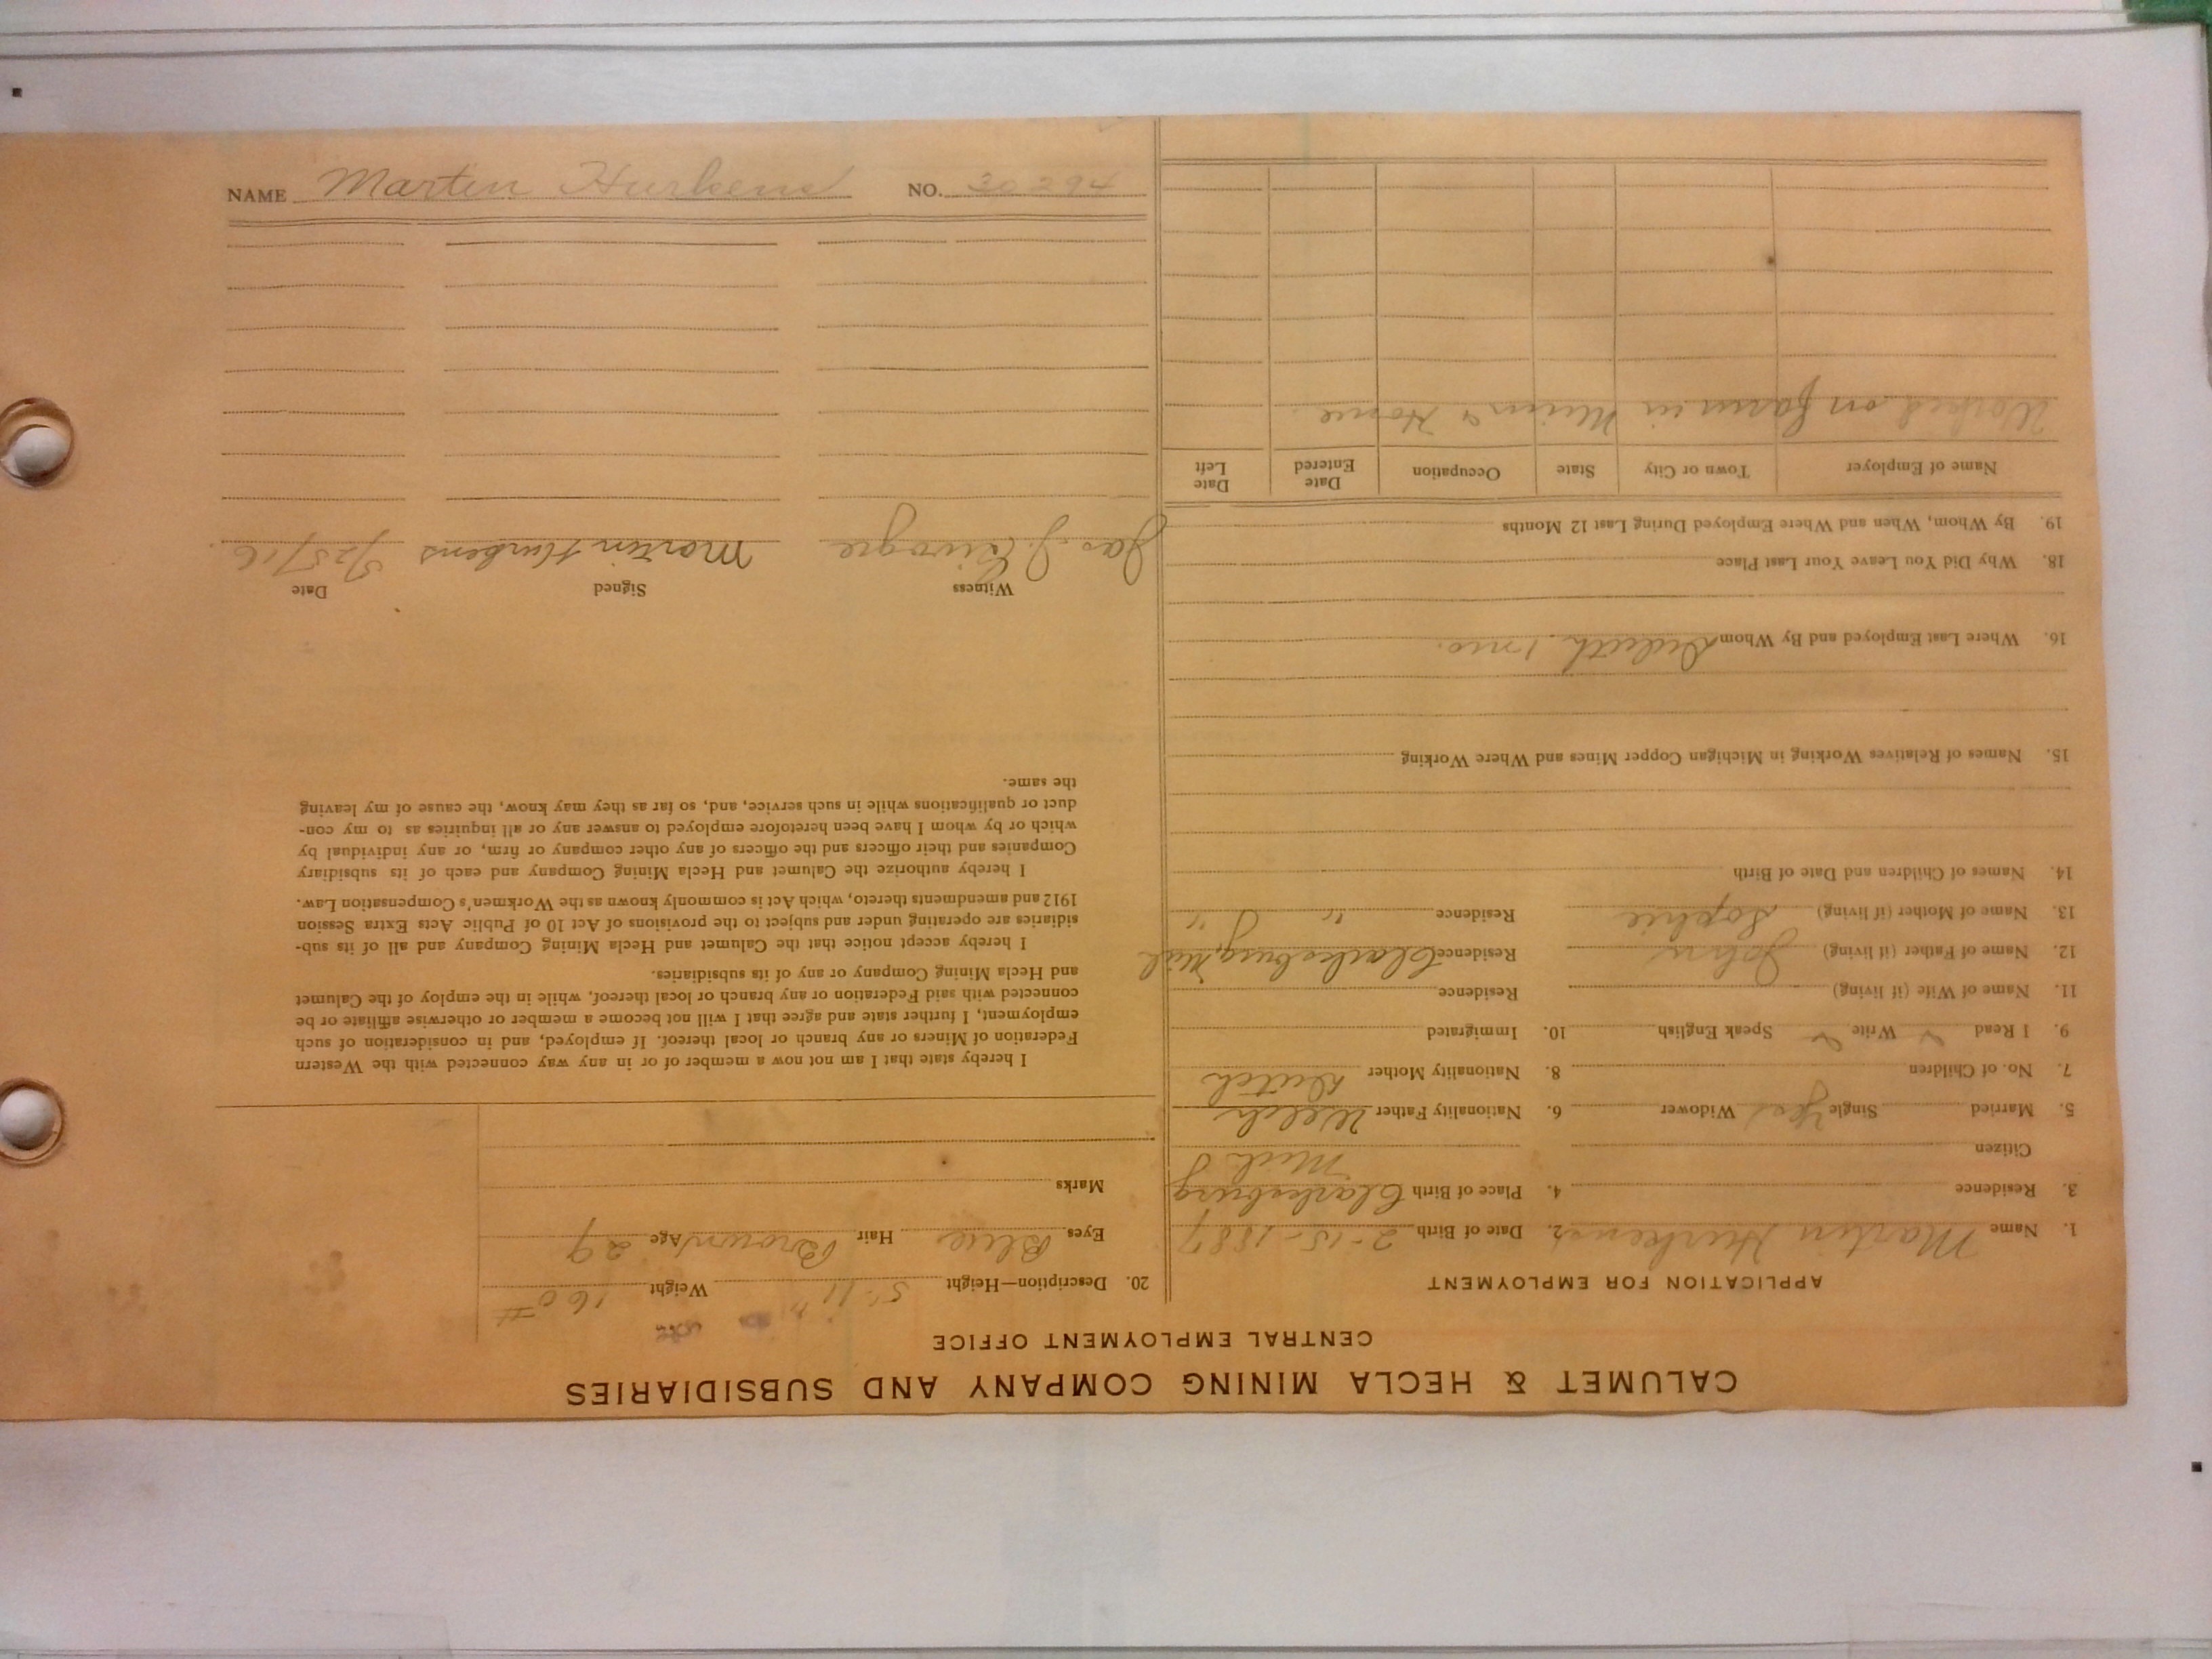 CALUMET & HECLA MINING COMPANY AND SUBSIDIARIES
CENTRAL EMPLOYMENT OFFICE
APPLICATION FOR EMPLOYMENT
1. Name Martin Hurkens 2. Date of Birth 2-15-1887
3. Residence 4. Place of Birth Clarksburg
Citizen Mich
5. Married Single Yes Widower 6. Nationality Father Welch
7. No. of Children 8. Nationality Mother Dutch
9. I Read Write Speak English 10. Immigrated
11. Name of Wife (if living) Residence
12. Name of Father (if living) John Residence Clarksburg, Mich
13. Name of Mother (if living) Sophie Residence " "
14. Names of Children and Date of Birth
15. Names of Relatives Working in Michigan Copper Mines and Where Working
16. Where Last Employed and By Whom Duluth 1 mo.
18. Why Did You Leave Your Last Place
19. By Whom, When and Where Employed During Last 12 Months
Name of Employer Town or City State Occupation Date Entered Date Left
Worked on farm in Minn & Home.
20. Description—Height 5' 11" Weight 160 #
Eyes Blue Hair Brown Age 29
Marks
I hereby state that I am not now a member of or in any way connected with the Western
Federation of Miners or any branch or local thereof. If employed, and in consideration of such
employment, I further state and agree that I will not become a member or otherwise affiliate or be
connected with said Federation or any branch or local thereof, while in the employ of the Calumet
and Hecla Mining Company or any of its subsidiaries.
I hereby accept notice that the Calumet and Hecla Mining Company and all of its sub-
sidiaries are operating under and subject to the provisions of Act 10 of Public Acts Extra Session
1912 and amendments thereto, which Act is commonly known as the Workmen's Compensation Law.
I hereby authorize the Calumet and Hecla Mining Company and each of its subsidiary
Companies and their officers and the officers of any other company or firm, or any individual by
which or by whom I have been heretofore employed to answer any or all inquiries as to my con-
duct or qualifications while in such service, and, so far as they may know, the cause of my leaving
the same.
Witness Signed Date
Jas. J. Martin Hurkens /25/16
NAME Martin Hurkens NO. 30294